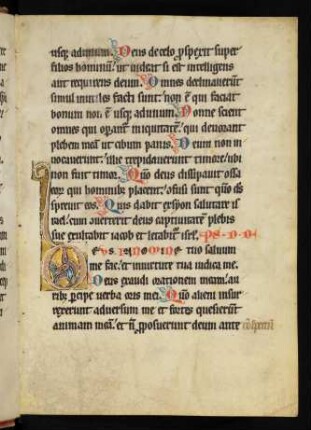 usq; ad unum. Deus de celo ꝓspexit super
filios hominū. ut uideat si est intelligens
aut requirens deum. Omnes declinauerūt
simul inutiles facti sunt. non ē qui faciat
bonum non ē usq; ad unum. Nonne scient
omnes qui opant iniquitatē. qui deuorant
plebem meā ut cibum panis. Deum non in
uocauerunt. illic trepidauerunt timore. ubi
non fuit timor. Quō deus dissipauit ossa
eoꝝ qui hominib; placent. cōfusi sunt quō dś
spreuit eos. Quis dabit ex syon salutare is
rael. cum auerterit deus captiuitatē plebis
sue exultabit iacob et letabit isrl. PS. D. D.
DEUS IN NOMINE tuo saluum
me fac. et in uirtute tua iudica me.
Deus exaudi orationem meam. au
rib; ꝑcipe uerba oris mei. Quō alieni insur
rexerunt aduersum me et fortes quesierūt
animam meā. et ñ ꝓposuerunt deum ante cōspectū